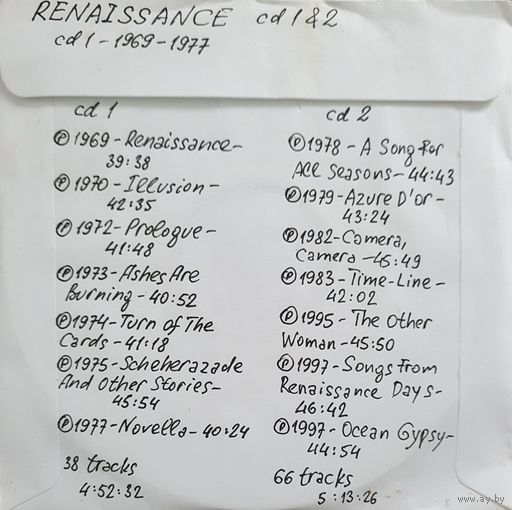 RENAISSANCE cd 1 & 2
cd 1 - 1969 - 1977
cd 1
℗ 1969 - Renaissance -
39:38
℗ 1970 - Illusion -
42:35
℗ 1972 - Prologue -
41:48
℗ 1973 - Ashes Are
Burning - 40:52
℗ 1974 - Turn of The
Cards - 41:18
℗ 1975 - Scheherazade
And Other Stories -
45:54
℗ 1977 - Novella - 40:24
38 tracks
4:52:32
cd 2
℗ 1978 - A Song For
All Seasons - 44:43
℗ 1979 - Azure D'or -
43:24
℗ 1982 - Camera,
Camera - 45:49
℗ 1983 - Time-Line -
42:02
℗ 1995 - The Other
Woman - 45:50
℗ 1997 - Songs From
Renaissance Days -
46:42
℗ 1997 - Ocean Gypsy -
44:54
66 tracks
5:13:26
www.ay.by